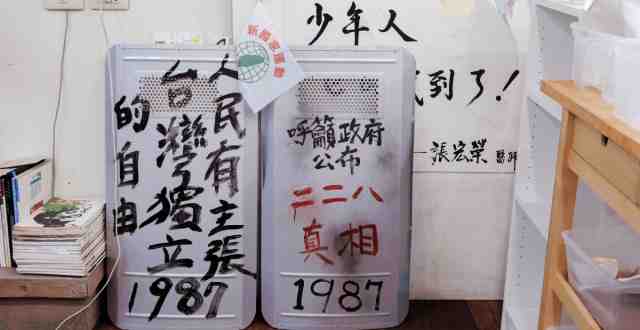 人民有主張
台灣獨立
的自由
1987
新國家運動
呼籲政府
公布
二二八
真相
1987
少年人
到了！
—張宏榮 醫師